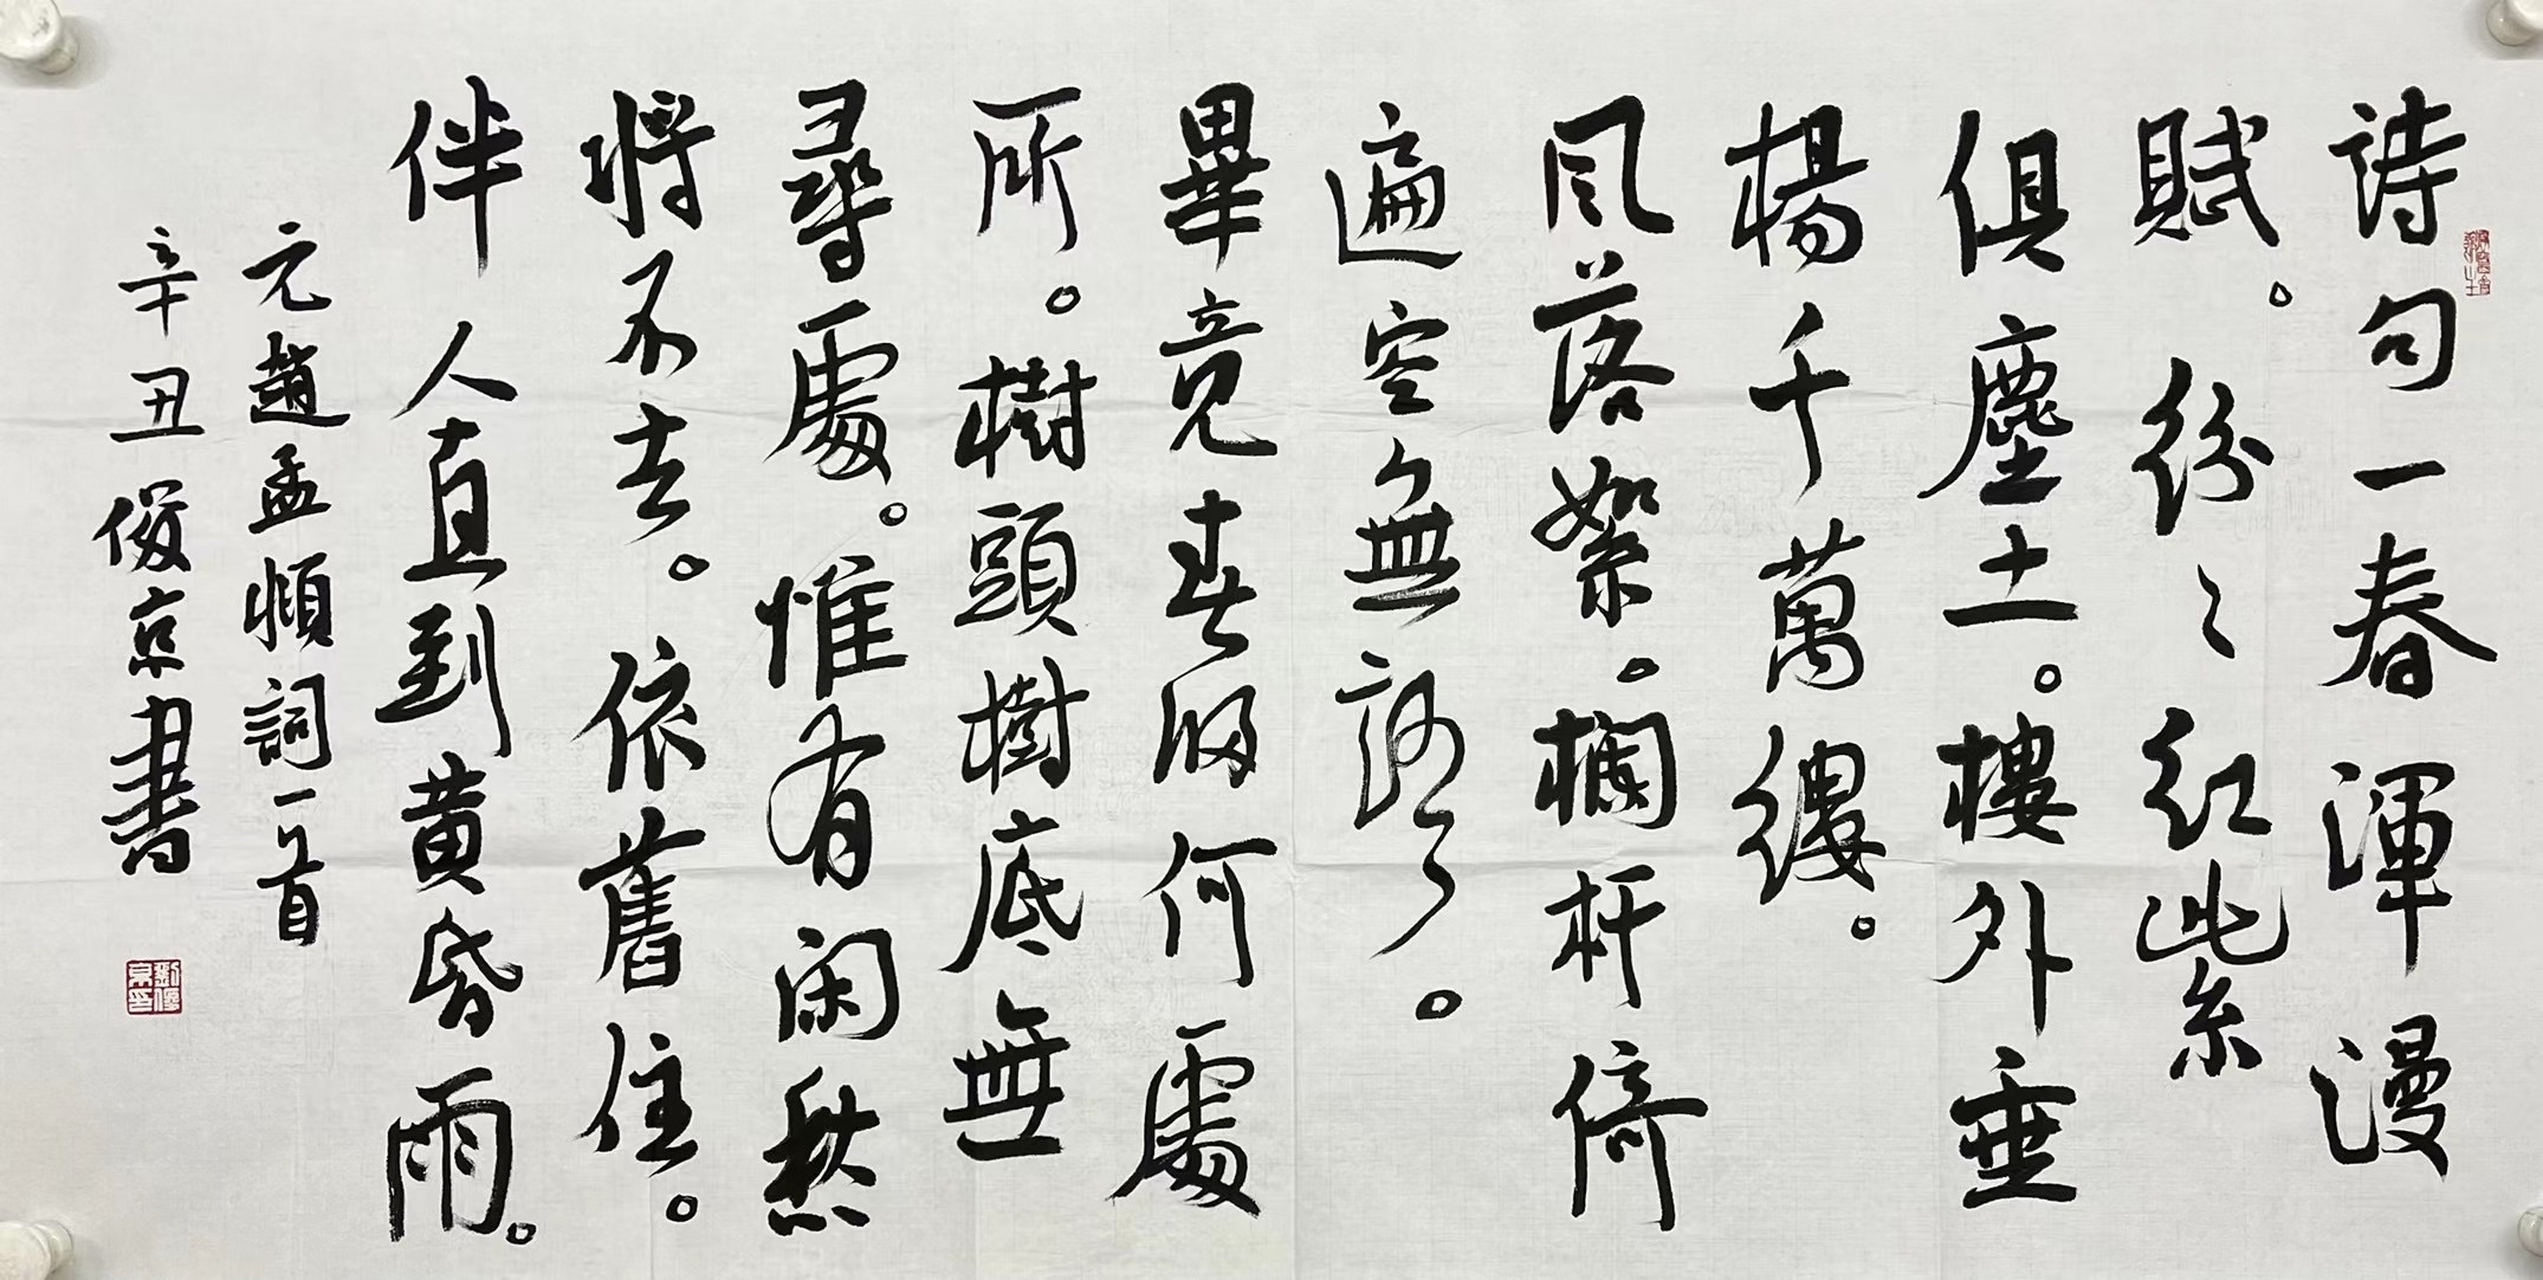 詩句一春渾漫
賦。紛々紅紫
俱塵土。樓外垂
楊千萬縷。
風落絮。欄杆倚
遍空無語。
畢竟春歸何處
所。樹頭樹底無
尋處。惟有闲愁
將不去。依舊住。
伴人直到黃昏雨。
元趙孟頫詞一首
辛丑俊京書
劉俊京印